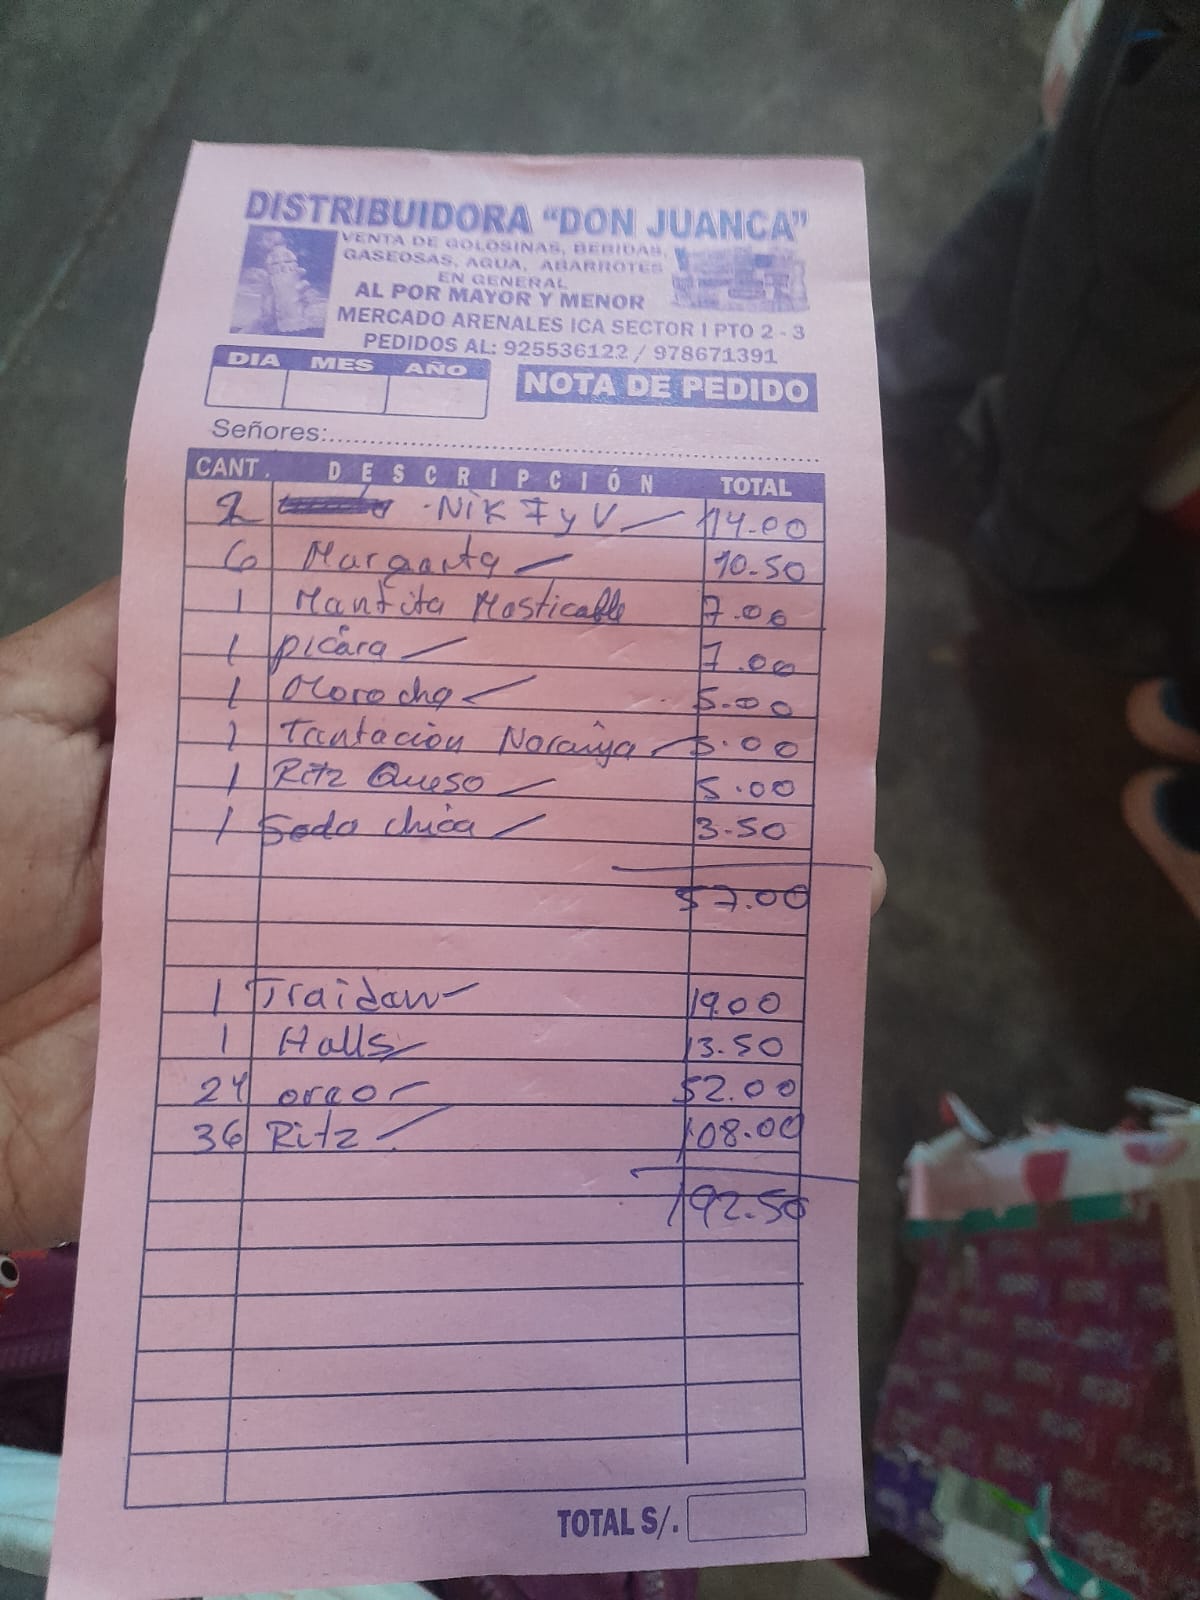 DISTRIBUIDORA "DON JUANCA"
VENTA DE GOLOSINAS, BEBIDAS,
GASEOSAS, AGUA, ABARROTES
EN GENERAL
AL POR MAYOR Y MENOR
MERCADO ARENALES ICA SECTOR I PTO 2 - 3
PEDIDOS AL: 925536122 / 978671391
DIA MES AÑO
NOTA DE PEDIDO
Señores:
CANT. DESCRIPCIÓN TOTAL
2 NiK F y V 14.00
6 Margarita 10.50
1 Mantita Masticable 7.00
1 picara 7.00
1 Morocha 5.00
1 Tantacion Naranja 5.00
1 Ritz Queso 5.00
1 Soda chica 3.50
57.00
1 Traidan 19.00
1 Halls 13.50
24 oreo 52.00
36 Ritz 108.00
192.50
TOTAL S/.